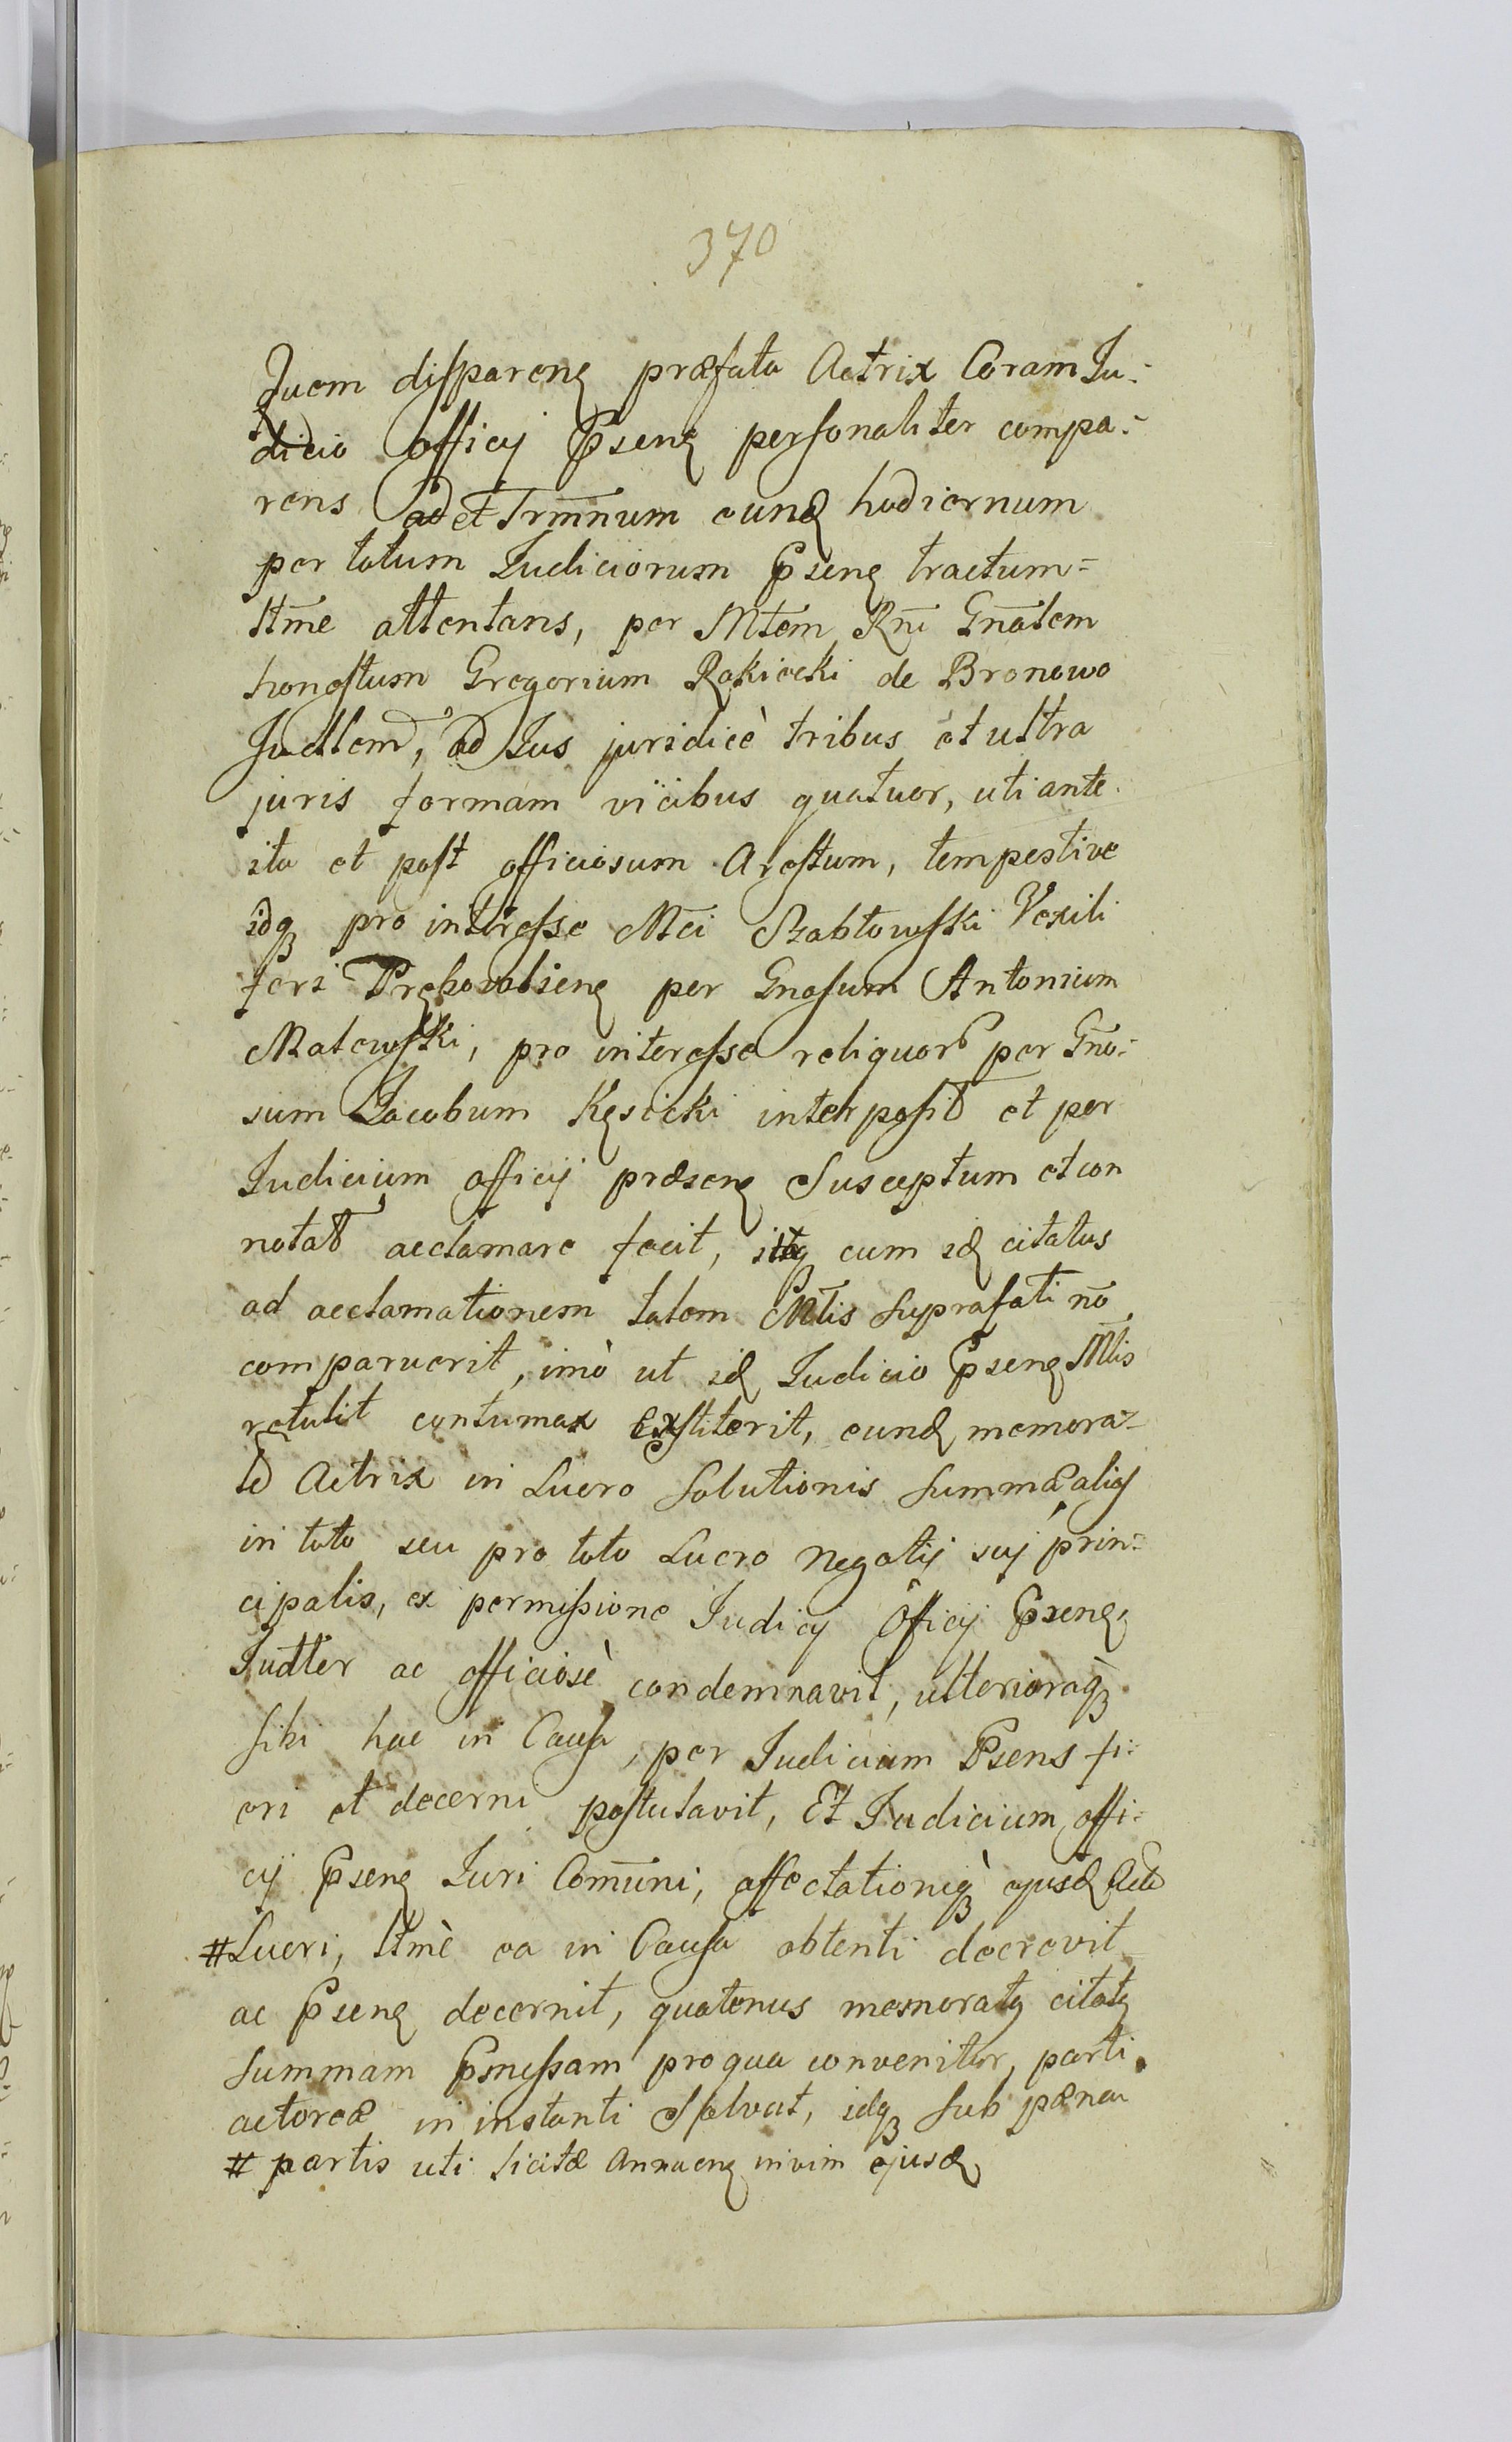 370
Quem dispareng præfata Actrix Coram Ju:
dicio Officij Pseng personaliter compa:
rens ad et Trm̄num eund hodiernum
per totum Judiciorum Pseng tractum=
ttm̄e attentans, per Mtem Rn̄i Gn̄alem
honestum Gregorium Rokicki de Bronowo
Judtem, ad Jus juridicè tribus et ultra
juris formam vicibus quatuor, uti ante
ita et post officiosum Arestum, tempestive
idq pro interesse Mci Szabłowski Vexili
feri per Gnosum Antonium
pro interesse reliquor per Gn̄o:
sum Jacobum Kęsicki interposit et per
Judicium officij præseng Susceptum et con
notat acclamare fecit, itaq cum id citatus
ad acclamationem talem Mtis suprafati nō
comparuerit, imò ut id Judicio Pseng Mtis
retulit contumax exstiterit, eund memora=
ta Actrix in Lucro Solutionis Summæ alias
in toto seu pro toto Lucro negotij suj prin=
cipalis, ex permissione Judicij Officij Pseng
Judtter ac officiosè condemnavit, ulterioraq
sibi hac in Causa, per Judicium Psens fi:
eri et decerni postulavit, Et Judicium offi:
cij Pseng Juri Com̄uni, affectationiq ejusd Act
#Lucri, ttmè ea in Causa obtenti decrevit
ac Pseng decernit, quatenus memoratg citatg
summam Pmissam pro qua convenitur, parti
actoreæ in instanti Solvat, idq sub pæna
# partis uti licitæ annueng in vim ejusd